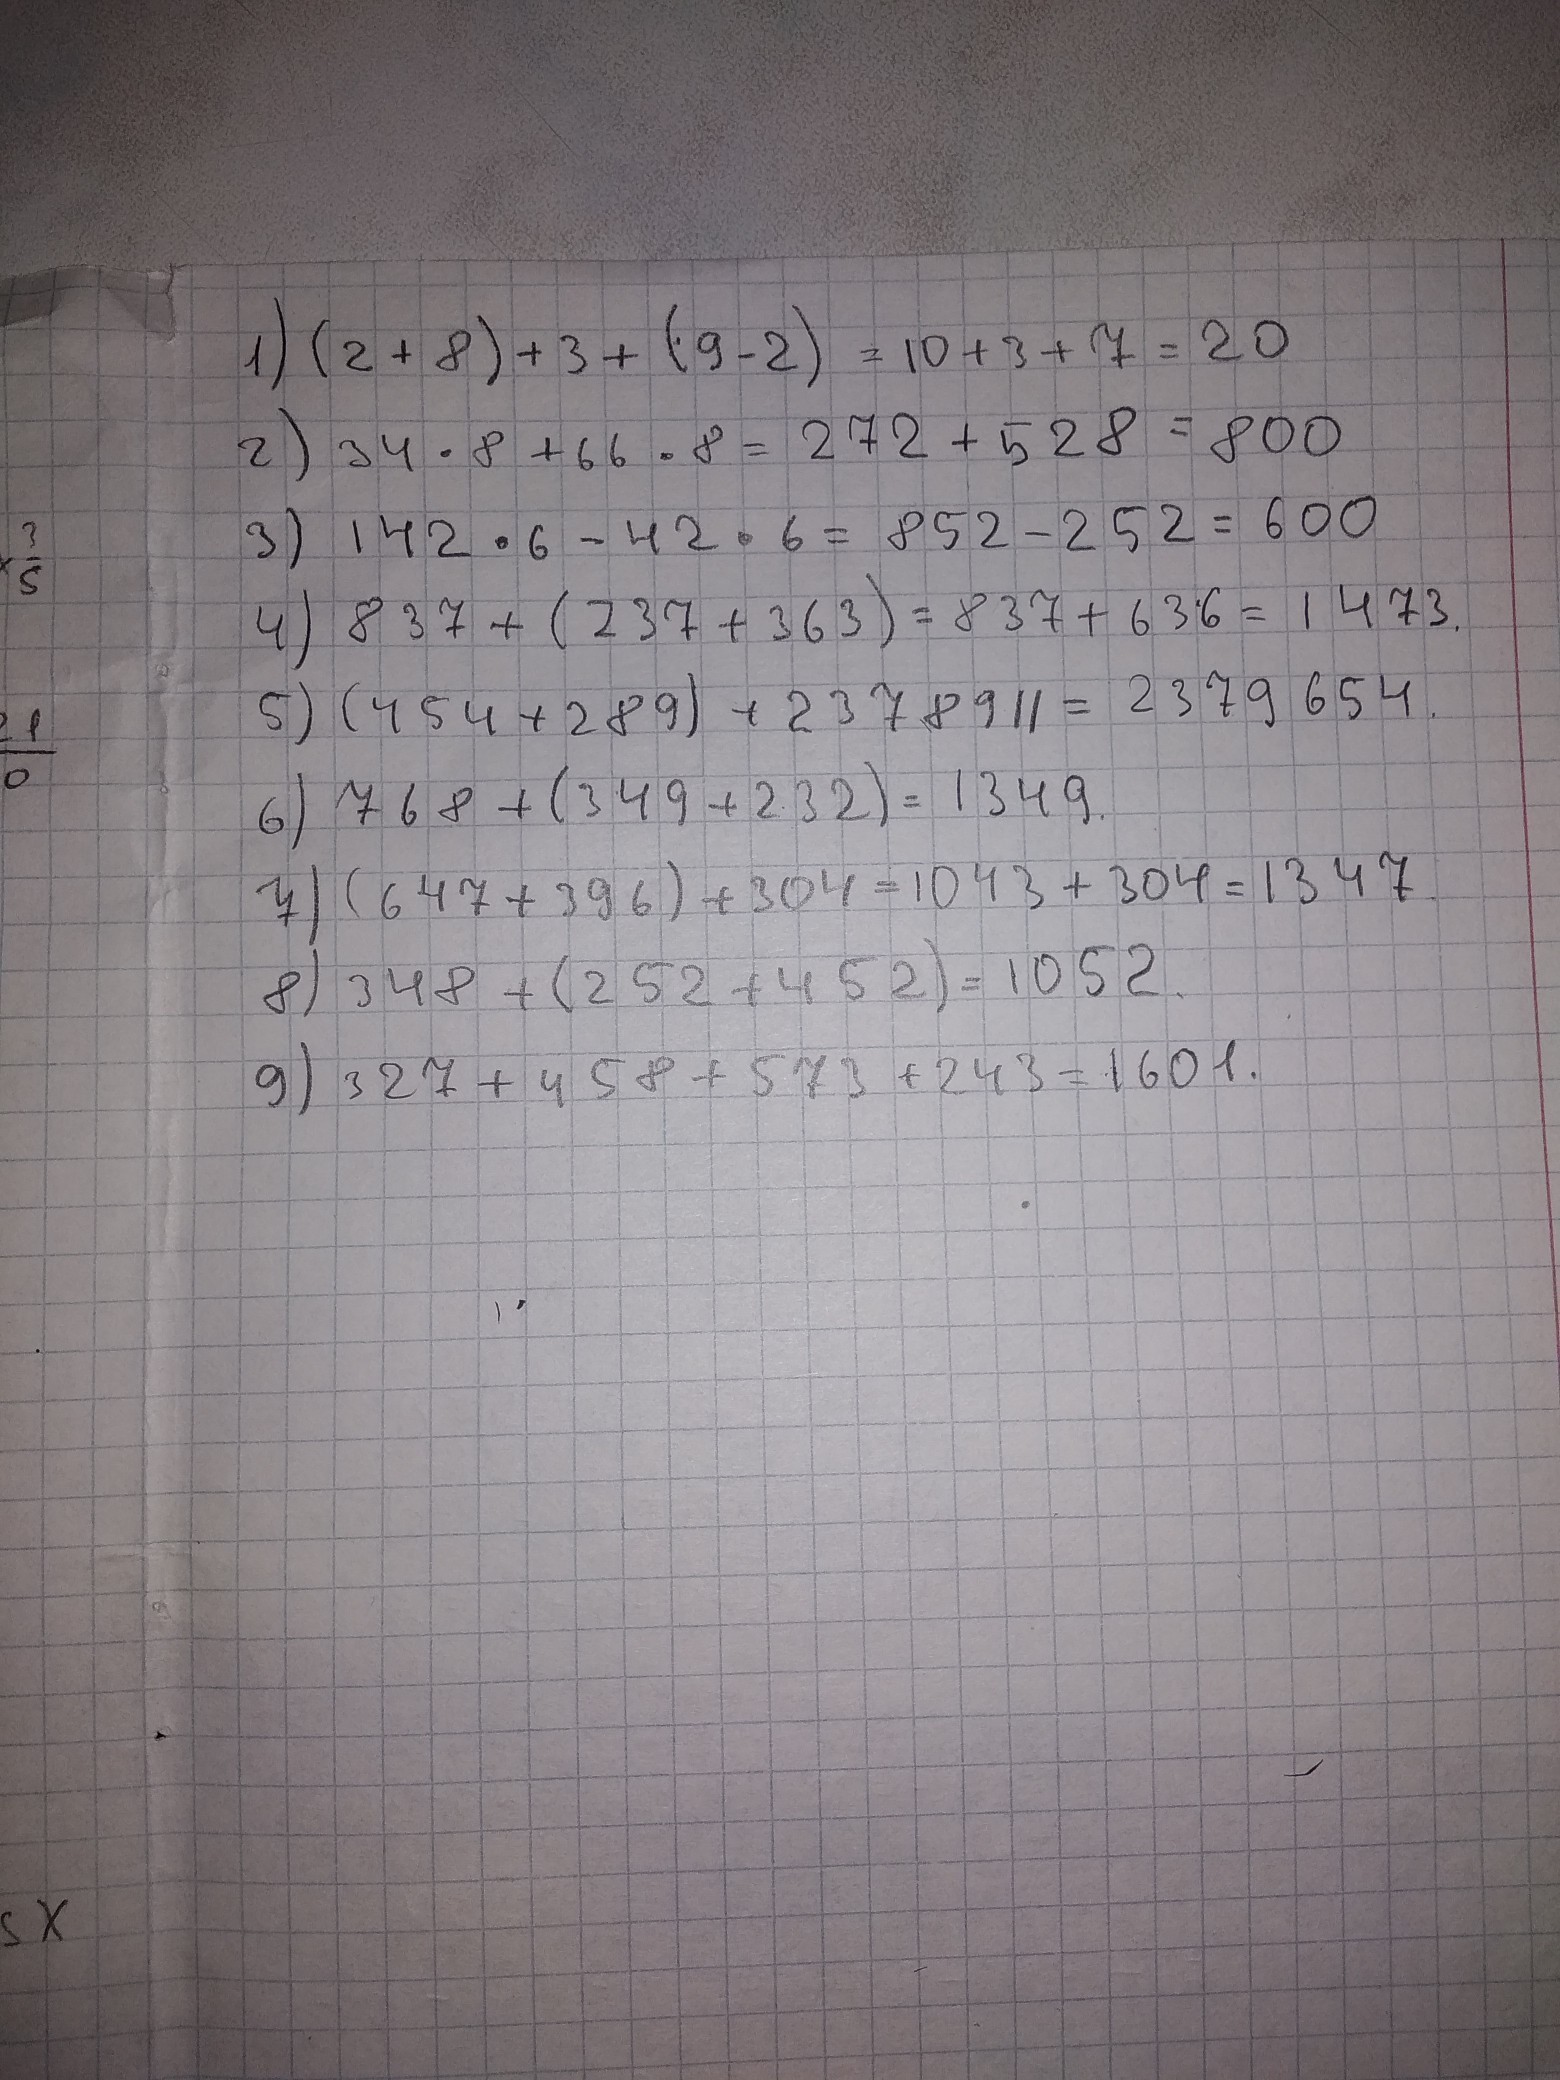 1) (2+8)+3+(9-2) =10+3+7=20
2) 34·8+66·8=272+528=800
3) 142·6-42·6=852-252=600
4) 837+(237+363)=837+636=1473.
5) (454+289)+2378911=2379654.
6) 768+(349+232)=1349.
7) (647+396)+304=1043+304=1347
8) 348+(252+452)=1052.
9) 327+458+573+243=1601.
3
5
21
0
5X